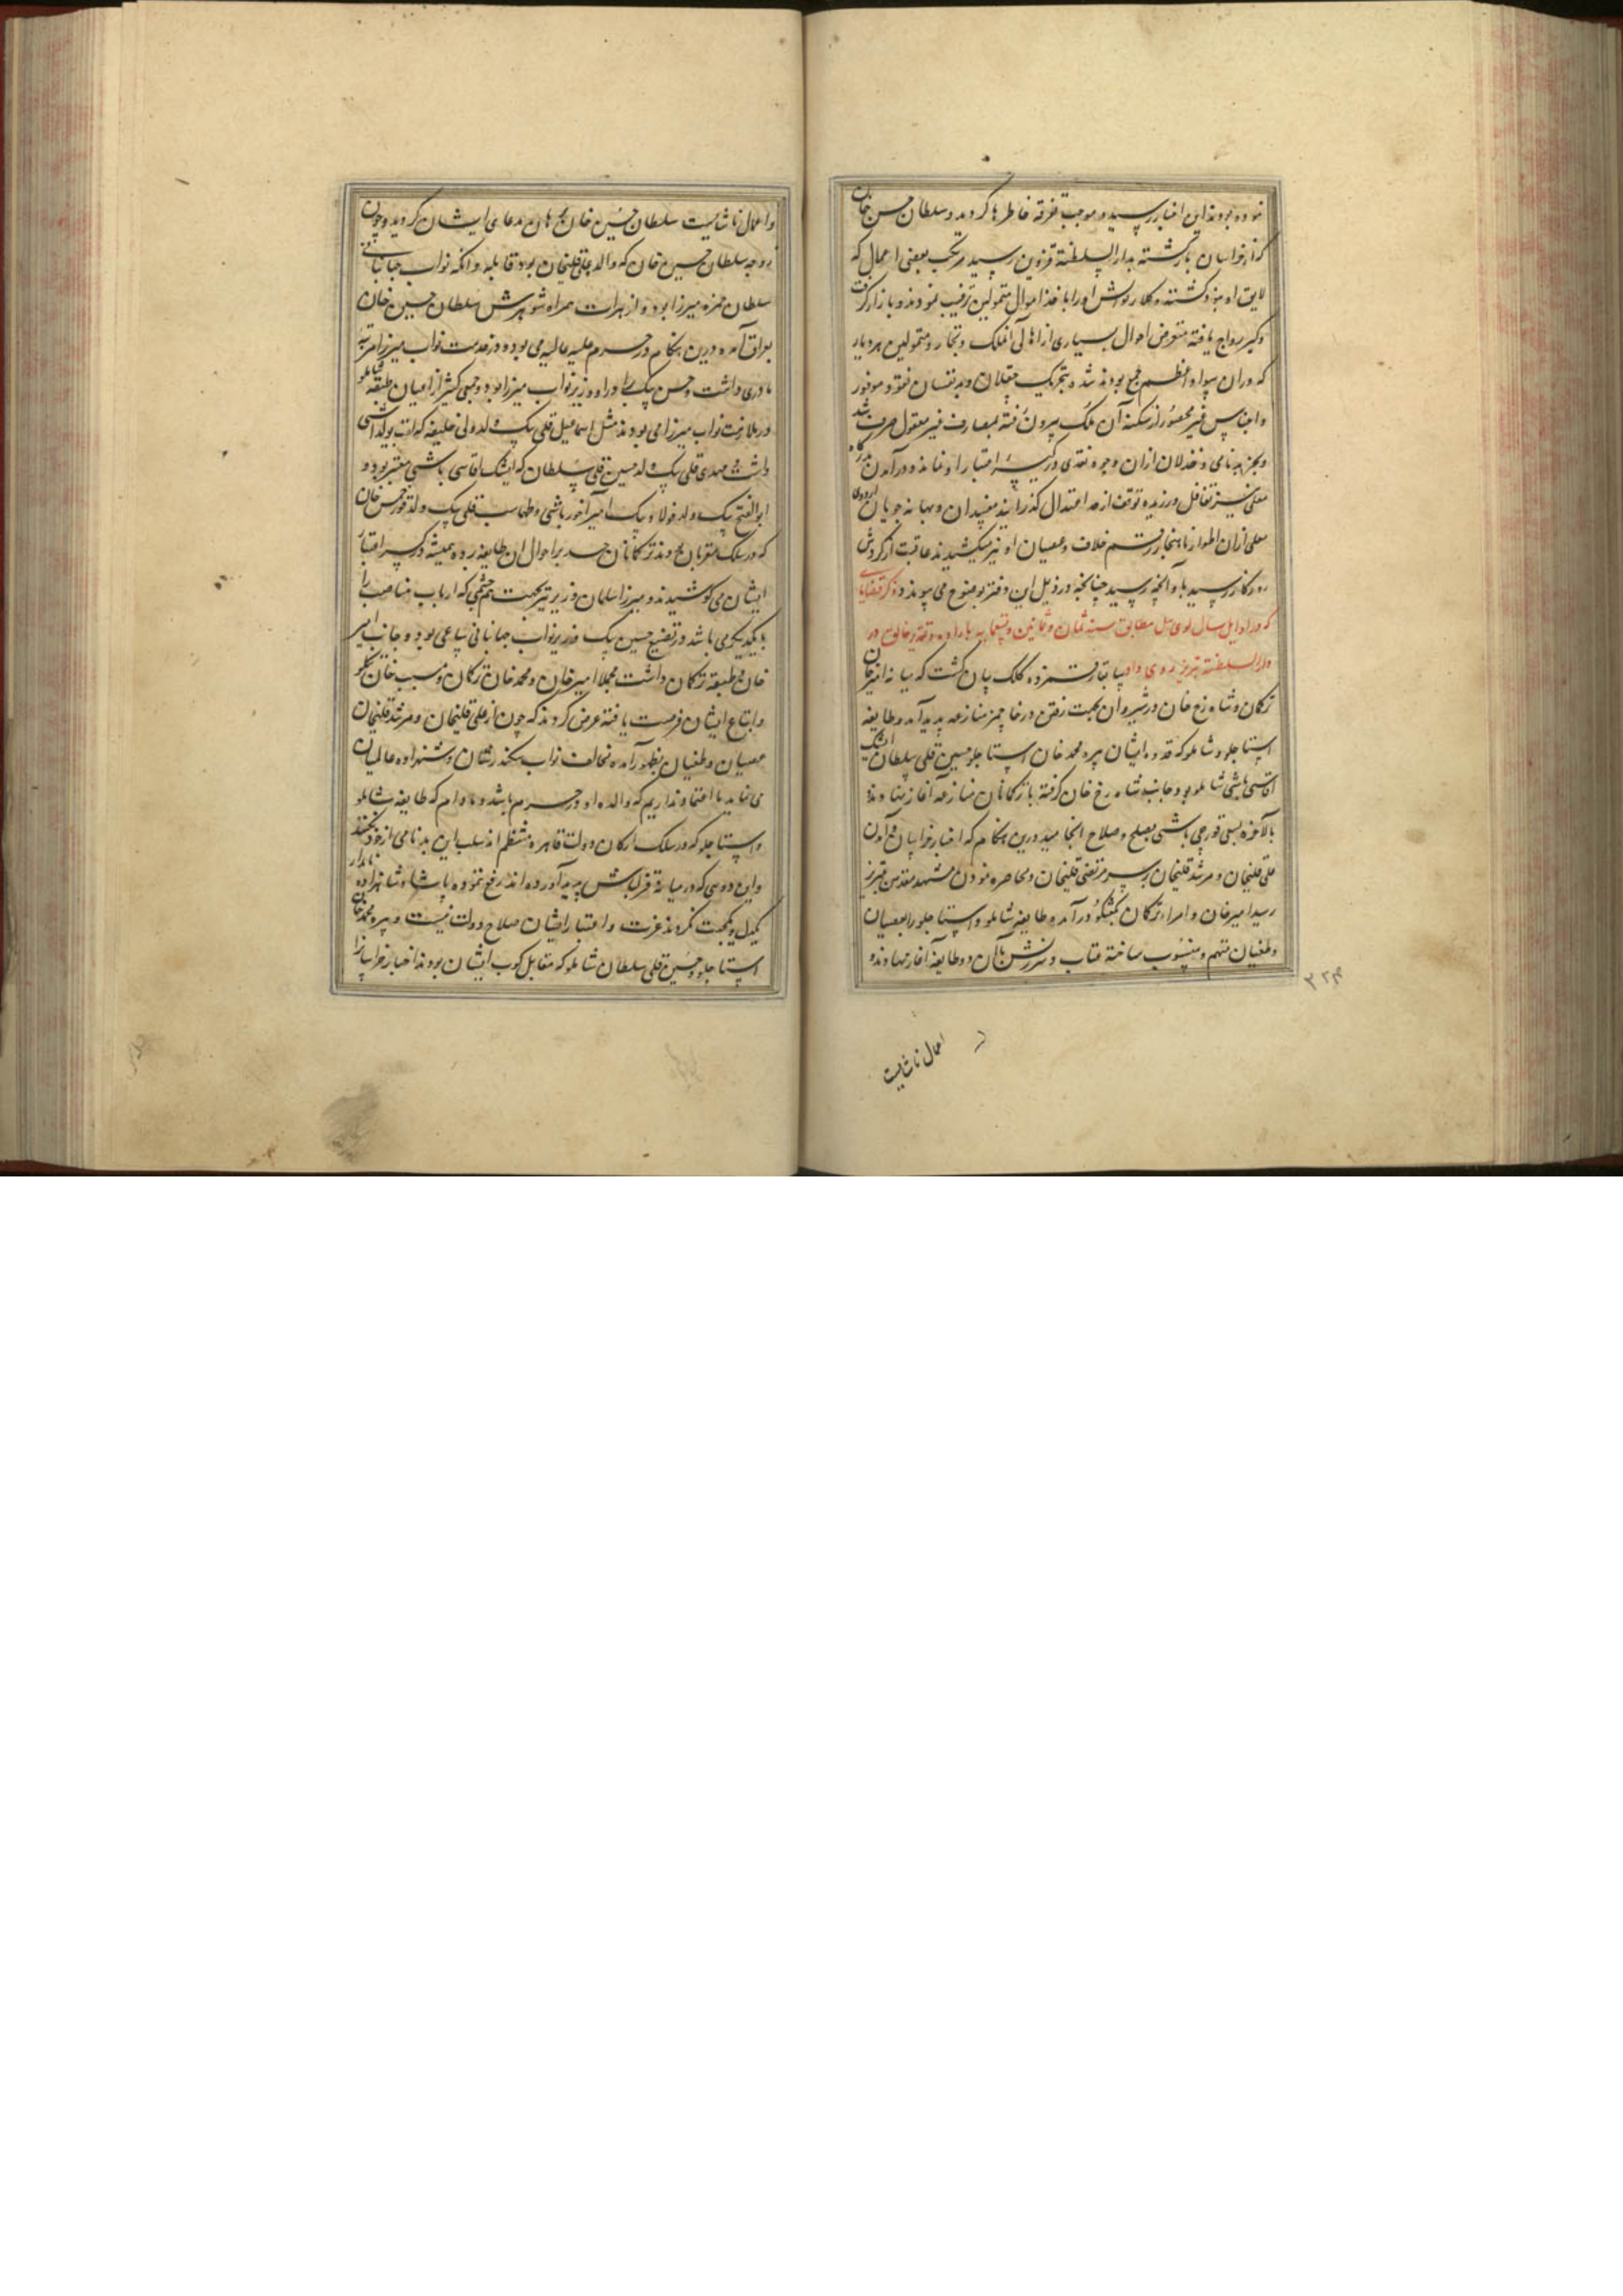 نموده بودند این اخبار رسید و موجب تفرقه خاطرها گردید و سلطان حسن خان
که از خراسان بازگشته بدار السلطنة قزوین رسید مرتکب بعضی اعمال که
لایق او نبود گشته وکلا روش او را باخذ اموال متمولین ترغیب نمودند و بازار گرفت
و گیر رواج یافته متعرض احوال بسیاری از اهالی آنملک و تجار و متمولین هر دیار
که در ان سواد اعظم جمع بودند شد و بتحریک مقبلان و بدنفسان نقود موفور
و اجناس غیر محصور از سکنه آن ملک بیرون رفته بمصارف غیر معقول صرف شد
و بجز بدنامی و خذلان ازان وجوه نقدی در کیسه اعتبار او نماند و در آمدن بدرگاه
معلی نیز تغافل ورزیده توقف از حد اعتدال گذرانید مفسدان و بهانه جویان اردوی
معلی ازان اطوار ناهنجار رقم خلاف و عصیان او نیز میکشیدند عاقبت از گردش
روزگار رسید باو آنچه رسید چنانچه در ذیل این دفتر بوضوح می پیوندد ذکر قضایای
که در اوایل سال لوی ئیل مطابق سنه ثمان و ثمانین و تسعمایه باراده و تقدیر خالق در
دار السلطنة تبریز روی داد سابقا رقمزده کلک بیان گشت که میانه امیر خان
ترکمان و شاهرخ خان در شیروان بجهت رفتن درخاچمز منازعه پدید آمد و طایفه
استاجلو و شاملو که قدوه ایشان پیره محمد خان استاجلو و حسین قلی سلطان ایشک
آقاسی باشی شاملو بود جانب شاه رخ خان گرفته با ترکمانان منازعه آغاز نهادند
بالآخره بسعی قورچی باشی بصلح و صلاح انجامید درین هنگام که اخبار خراسان و آمدن
علی قلیخان و مرشد قلیخان بر سر مرتضی قلیخان و محاصره نمودن مشهد مقدس بتبریز
رسید امیر خان و امراء ترکمان بگفتگو در آمده طایفه شاملو و استاجلو را بعصیان
و طغیان متهم و منسوب ساخته عتاب و سرزنش با آن دو طایفه آغاز نهادند و
اعمال ناشایست
و اعمال ناشایست سلطان حسین خان برهان مدعای ایشان گردید و چون
زوجه سلطان حسین خان که والده علی قلیخان بود قابله و انکه نواب جهانبانی
سلطان حمزه میرزا بود و از هرات همراه شوهرش سلطان حسین خان
بعراق آمده درین هنگام در حرم علیه عالیه می بود و در خدمت نواب میرزا مرتبه
مادری داشت و حسن بیک برادر او وزیر نواب میرزا بود و جمعی کثیر از اعیان طبقه شاملو
در ملازمت نواب میرزا می بودند مثل اسماعیل قلی بیک ولد ولی خلیفه که لقب یولداشی
داشت و مهدی قلی بیک ولد حسین قلی سلطان که ایشک آقاسی باشی معتبر بود و
ابو الفتح بیک ولد فولاد بیک امیر آخور باشی و طهماسب قلی بیک ولد قور حسن خان
که در سلک مقربان بودند ترکمانان حسد بر احوال ان طایفه برده همیشه در کسر اعتبار
ایشان می کوشیدند و میرزا سلمان وزیر نیز بجهت هم چشمی که ارباب مناصب را
با یکدیگر می باشد در تضییع حسین بیک وزیر نواب جهانبانی ساعی بود و جانب امیر
خان و طبقه ترکمان داشت مجملا امیر خان و محمد خان ترکمان و مسیب خان تکلو
و اتباع ایشان فرصت یافته عرض کردند که چون از علی قلیخان و مرشد قلیخان
عصیان و طغیان بظهور آمده مخالفت نواب سکندر شان و شهزاده عالمیان
می نماید ما اعتماد نداریم که والده او در حرم باشد و مادام که طایفه شاملو
و استاجلو که در سلک ارکان دولت قاهره منتظم اند سلب این بدنامی از خود نکنند
و این دوسی که در میانه قزلباش پدید آورده اند رفع ننموده با شاه و شاهزاده نامدار
یکدل و یکجهت نگردند عزت و اعتبار ایشان صلاح دولت نیست و پیره محمد خان
استاجلو و حسین قلی سلطان شاملو که مقابل کوب ایشان بودند اخبار خراسان را